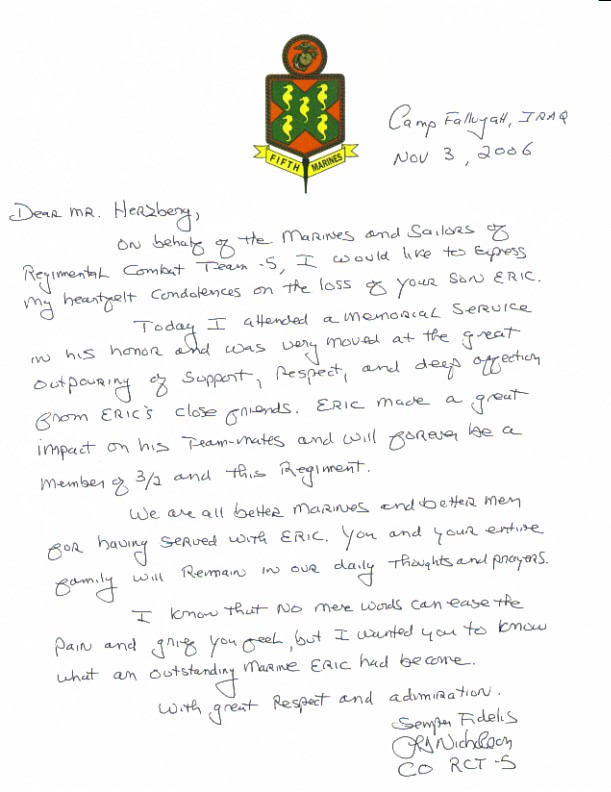 FIFTH MARINES
Camp Fallujah, IRAQ
Nov 3, 2006
Dear Mr. Herzberg,
On behalf of the Marines and Sailors of
Regimental Combat Team -5, I would like to Express
my heartfelt Condolences on the loss of your son ERIC.
Today I attended a memorial Service
in his honor and was very moved at the great
outpouring of support, Respect, and deep affection
from ERIC's close friends. ERIC made a great
impact on his Team-mates and will forever be a
member of 3/2 and this Regiment.
We are all better Marines and better men
for having served with ERIC. You and your entire
family will Remain in our daily thoughts and prayers.
I know that no mere words can ease the
pain and grief you feel, but I wanted you to know
what an outstanding Marine ERIC had become.
With great Respect and admiration.
Semper Fidelis
Nicholson
CO RCT -5